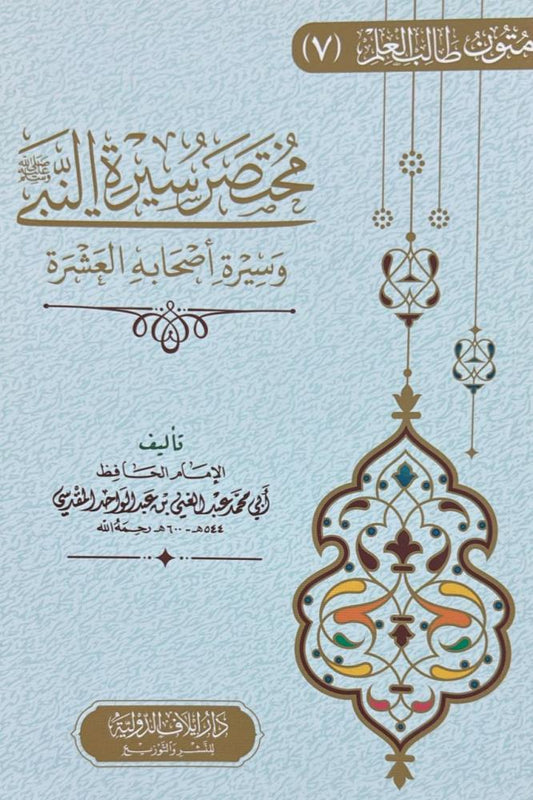 متون طالب العلم (٧)
مختصر سيرة النبي ﷺ
وسيرة أصحابه العشرة
تأليف
الإمام الحافظ
أبي محمد عبد الغني بن عبد الواحد المقدسي
٥٤٤هـ - ٦٠٠هـ رحمه الله
دار إيلاف الدولية
للنشر والتوزيع